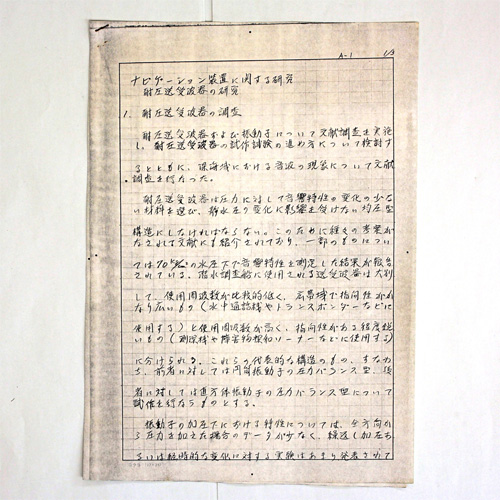 A-1
1/3
ナビゲーション装置に関する研究
耐圧送受波器の研究
1. 耐圧送受波器の調査
耐圧送受波器および振動子について文献調査を実施
し、耐圧送受波器の試作試験の進め方について検討す
るとともに、深海域における音波の現象について文献
調査を行なった。
耐圧送受波器は圧力に対して音響特性の変化の少な
い材料を選び、静水圧の変化に影響を受けない均圧型
構造にしなければならない。このために種々の考案が
なされて文献にも紹介されており、一部のものについ
ては の水圧下で音響特性を測定した結果が報告
されている。潜水調査船に使用される送受波器は大別
して、使用周波数が比較的低く、広帯域で指向性がか
なり広いもの(水中通話機やトランスポンダーなどに
使用する)と使用周波数が高く、指向性がある程度鋭
いもの(測深機や障害物探知ソーナーなどに使用する)
に分けられる。これらの代表的な構造のもの、すなわ
ち、前者に対しては円筒振動子の圧力バランス型、後
者に対しては直方体振動子の圧力バランス型について
試作を行なうものとする。
振動子の加圧下における特性については、全方向か
ら圧力を加えた場合のデータが少なく、経過(加圧も
るいは経時的な変化に対する実験はあまり発表されて